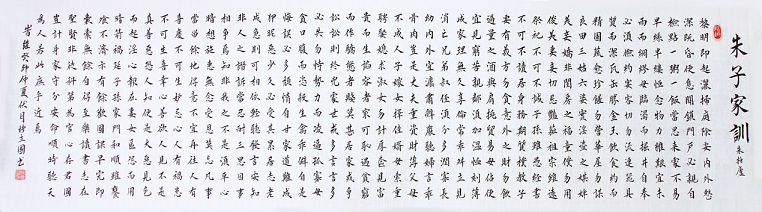 朱子家訓
朱柏廬
黎明即起灑掃庭除要内外整
潔既昏便息關鎖門戶必親自
檢點一粥一飯當思來處不易
半絲半縷恆念物力維艱宜未
雨而綢繆毋臨渴而掘井自奉
必須儉約宴客切勿流連器具
質而潔瓦缶勝金玉飲食約而
精園蔬愈珍饈勿營華屋勿謀
良田三姑六婆實淫盜之媒婢
美妾嬌非閨房之福童僕勿用
俊美妻妾切忌豔裝祖宗雖遠
祭祀不可不誠子孫雖愚經書
不可不讀居身務期質樸教子
要有義方勿貪意外之財勿飲
過量之酒與肩挑貿易毋佔便
宜見窮苦親鄰須加溫恤刻薄
成家理無久享倫常乖舛立見
消亡兄弟叔侄須分多潤寡長
幼内外宜法肅辭嚴聽婦言乖
骨肉豈是丈夫重資財薄父母
不成人子嫁女擇佳婿毋索重
聘娶媳求淑女勿計厚奩見富
貴而生諂容者最可恥遇貧窮
而作驕態者賤莫甚居家戒爭
訟訟則終凶處世戒多言言多
必失勿恃勢力而凌逼孤寡毋
貪口腹而恣殺牲禽乖僻自是
悔誤必多頹惰自甘家道難成
狎暱惡少久必受其累屈志老
成急則可相依輕聽發言安知
非人之譖訴當忍耐三思因事
相爭焉知非我之不是須平心
暗想施惠無念受恩莫忘凡事
當留餘地得意不宜再往人有
喜慶不可生妒忌心人有禍患
不可生喜幸心善欲人見不是
真善惡恐人知便是大惡見色
而起淫心報在妻女匿怨而用
暗箭禍延子孫家門和順雖饔
飧不濟亦有餘歡國課早完即
囊橐無餘自得至樂讀書志在
聖賢非徒科第為官心存君國
豈計身家守分安命順時聽天
為人若此庶乎近焉
仲夏伏月